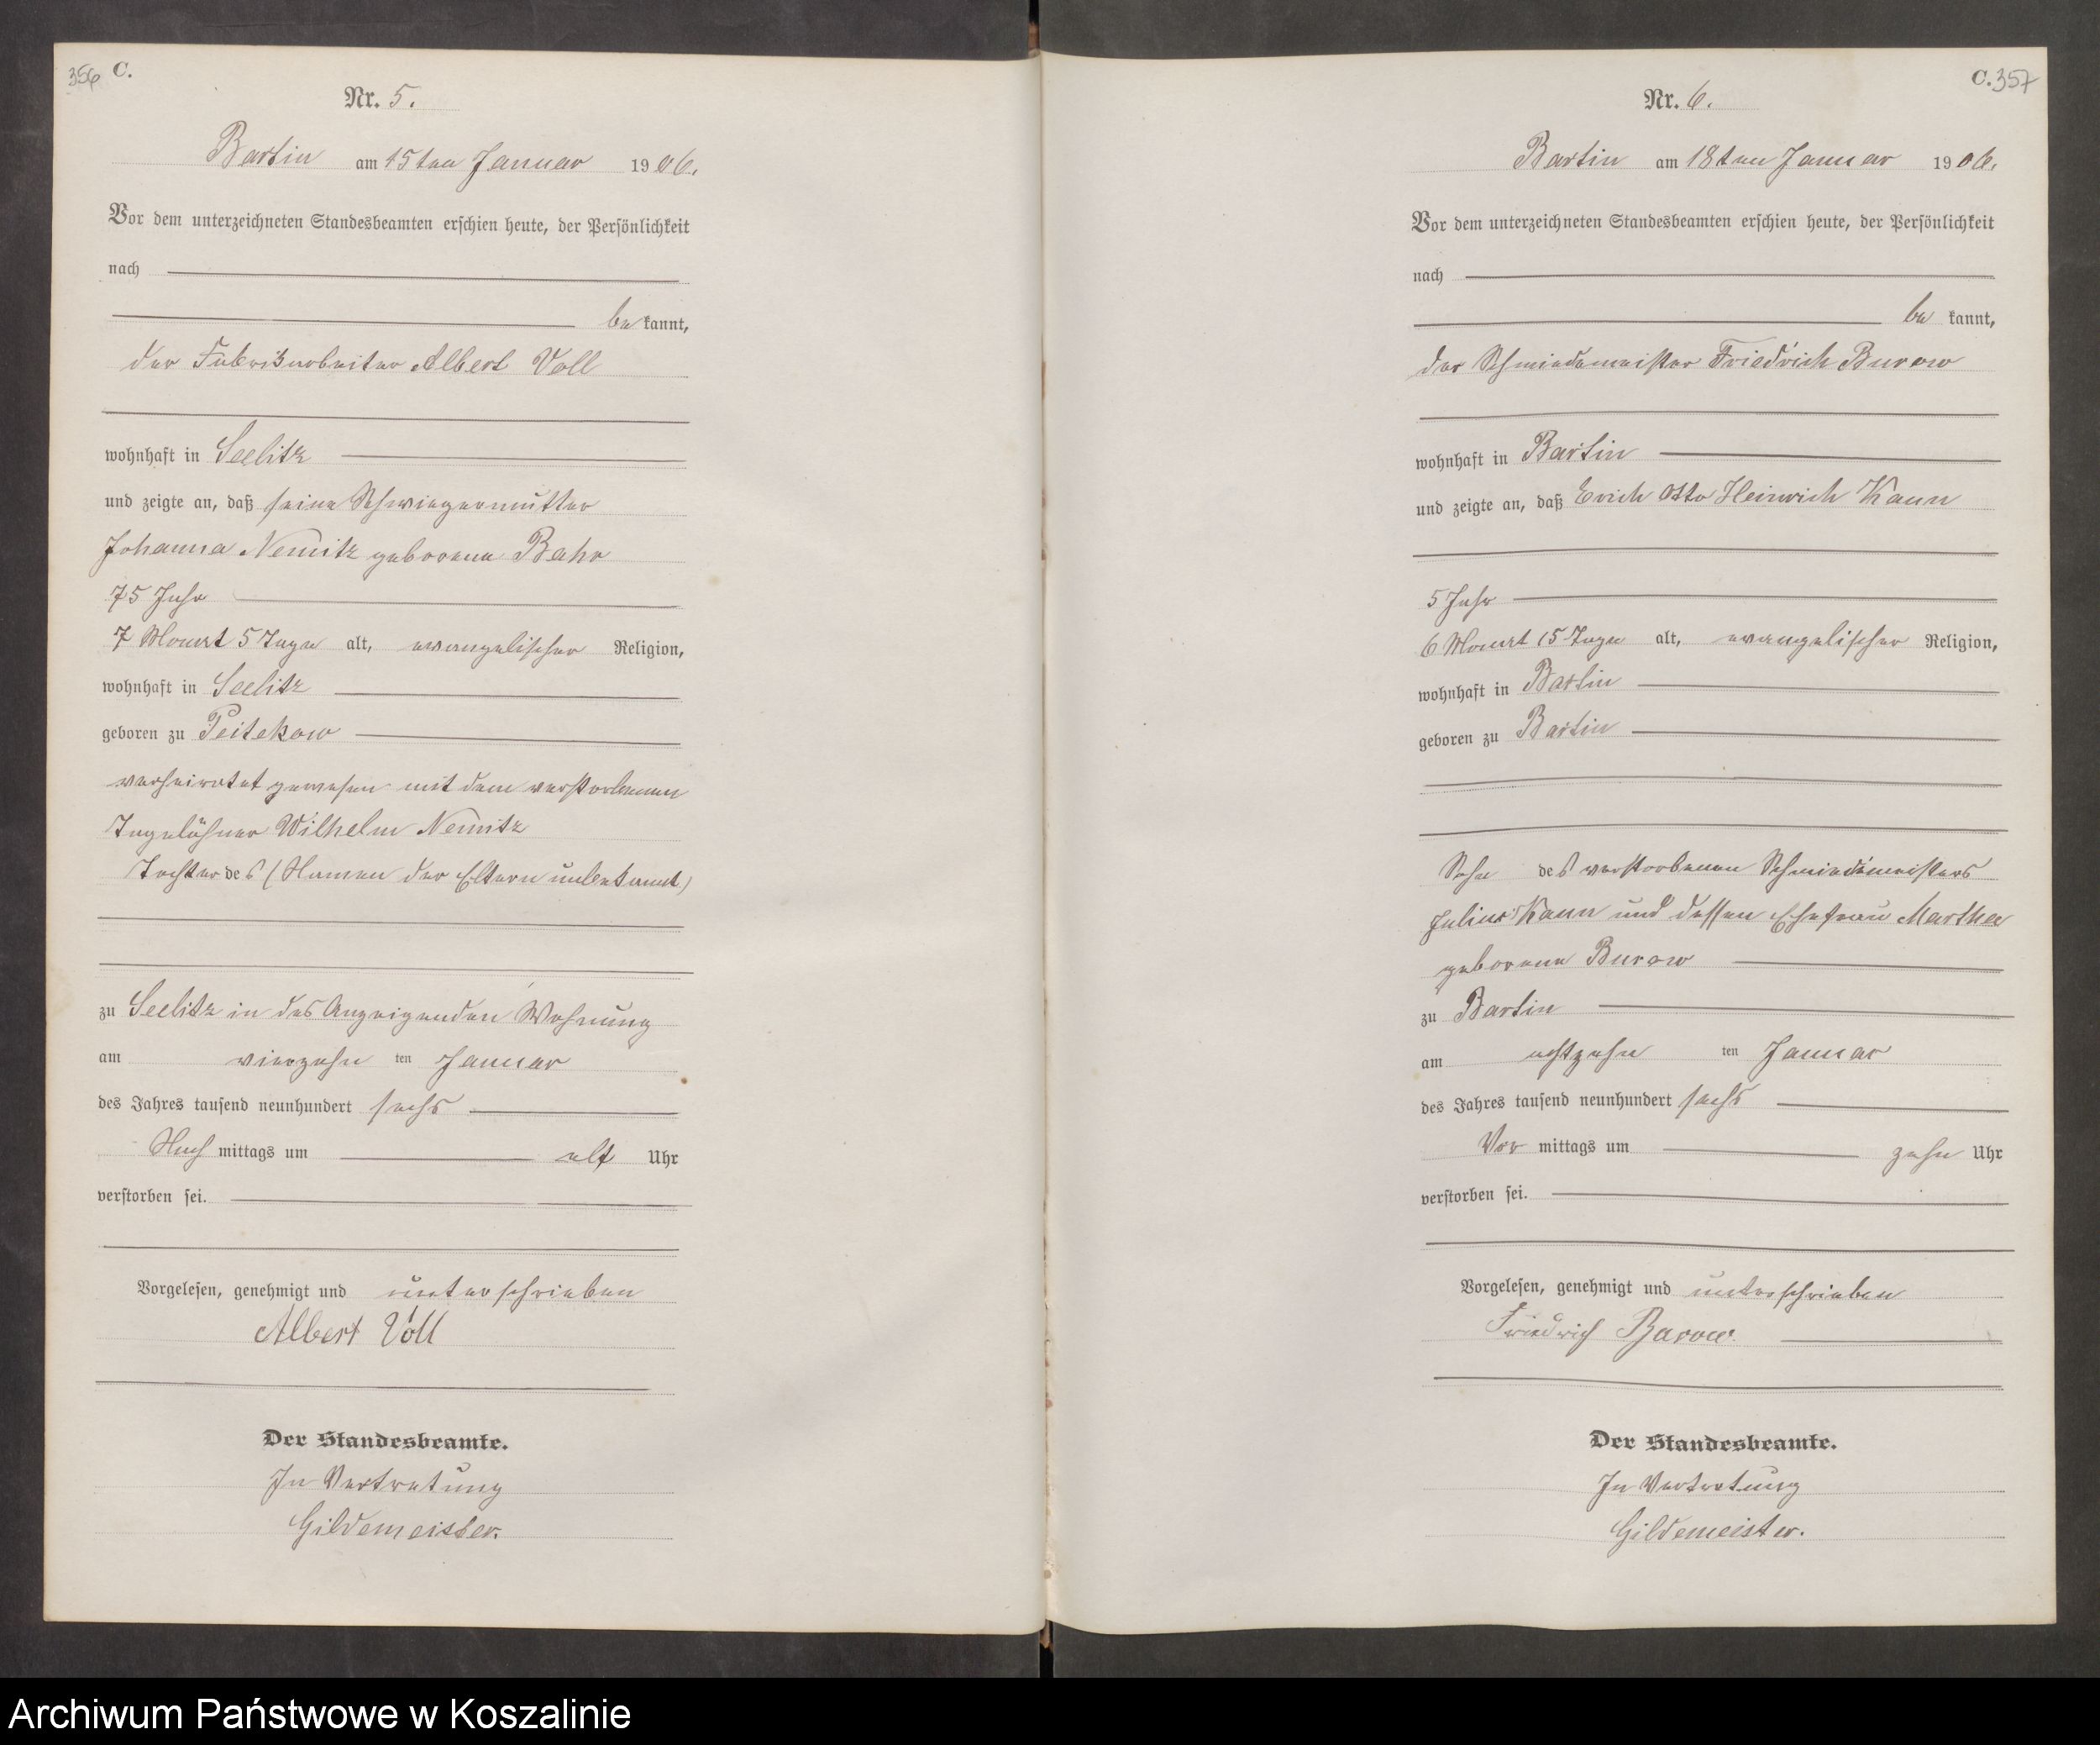 356 C.
Nr. 5.
Bartin am 15ten Januar 1906.
Vor dem unterzeichneten Standesbeamten erschien heute, der Persönlichkeit
nach
bekannt,
der Fabrikarbeiter Albert Voll
wohnhaft in Seelitz
und zeigte an, daß seine Schwiegermutter
Johanna Nemitz geborene Bahr
75 Jahr
7 Monat 5 Tage alt, evangelischer Religion,
wohnhaft in Seelitz
geboren zu Peitekow
verheiratet gewesen mit dem verstorbenen
Tagelöhner Wilhelm Nemitz
Tochter des (Namen der Eltern unbekannt)
zu Seelitz in des Anzeigenden Wohnung
am vierzehn ten Januar
des Jahres tausend neunhundert sechs
Nach mittags um elf Uhr
verstorben sei.
Vorgelesen, genehmigt und unterschrieben
Albert Voll
Der Standesbeamte.
In Vertretung
Gildemeister.
C. 357
Nr. 6.
Bartin am 18ten Januar 1906.
Vor dem unterzeichneten Standesbeamten erschien heute, der Persönlichkeit
nach
be kannt,
der Schmiedemeister Friedrich Burow
wohnhaft in Bartin
und zeigte an, daß Erich Otto Heinrich Kann
5 Jahr
6 Monat 15 Tage alt, evangelischer Religion,
wohnhaft in Bartin
geboren zu Bartin
Sohn des verstorbenen Schmiedemeisters
Julius Kann und dessen Ehefrau Martha
geborene Burow
zu Bartin
am achtzehn ten Januar
des Jahres tausend neunhundert sechs
Vor mittags um zehn Uhr
verstorben sei.
Vorgelesen, genehmigt und unterschrieben
Friedrich Burow
Der Standesbeamte.
In Vertretung
Gildemeister.
Archiwum Państwowe w Koszalinie